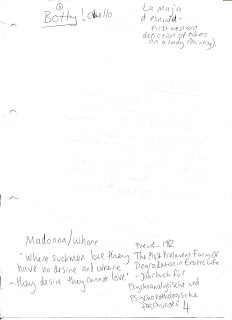 Botty!
La Maja
desnuda -
first western
depiction of pubes
on a lady (Painting).
Madonna/Whore
"Where such men love they
have no desire and where
- they desire they cannot love"
Freud - 1912
The Most Prevalent Form of
Degradation in Erotic Life
- Jahrbuch für
Psychoanalytische und
Psychopathologische
Forschungen 4